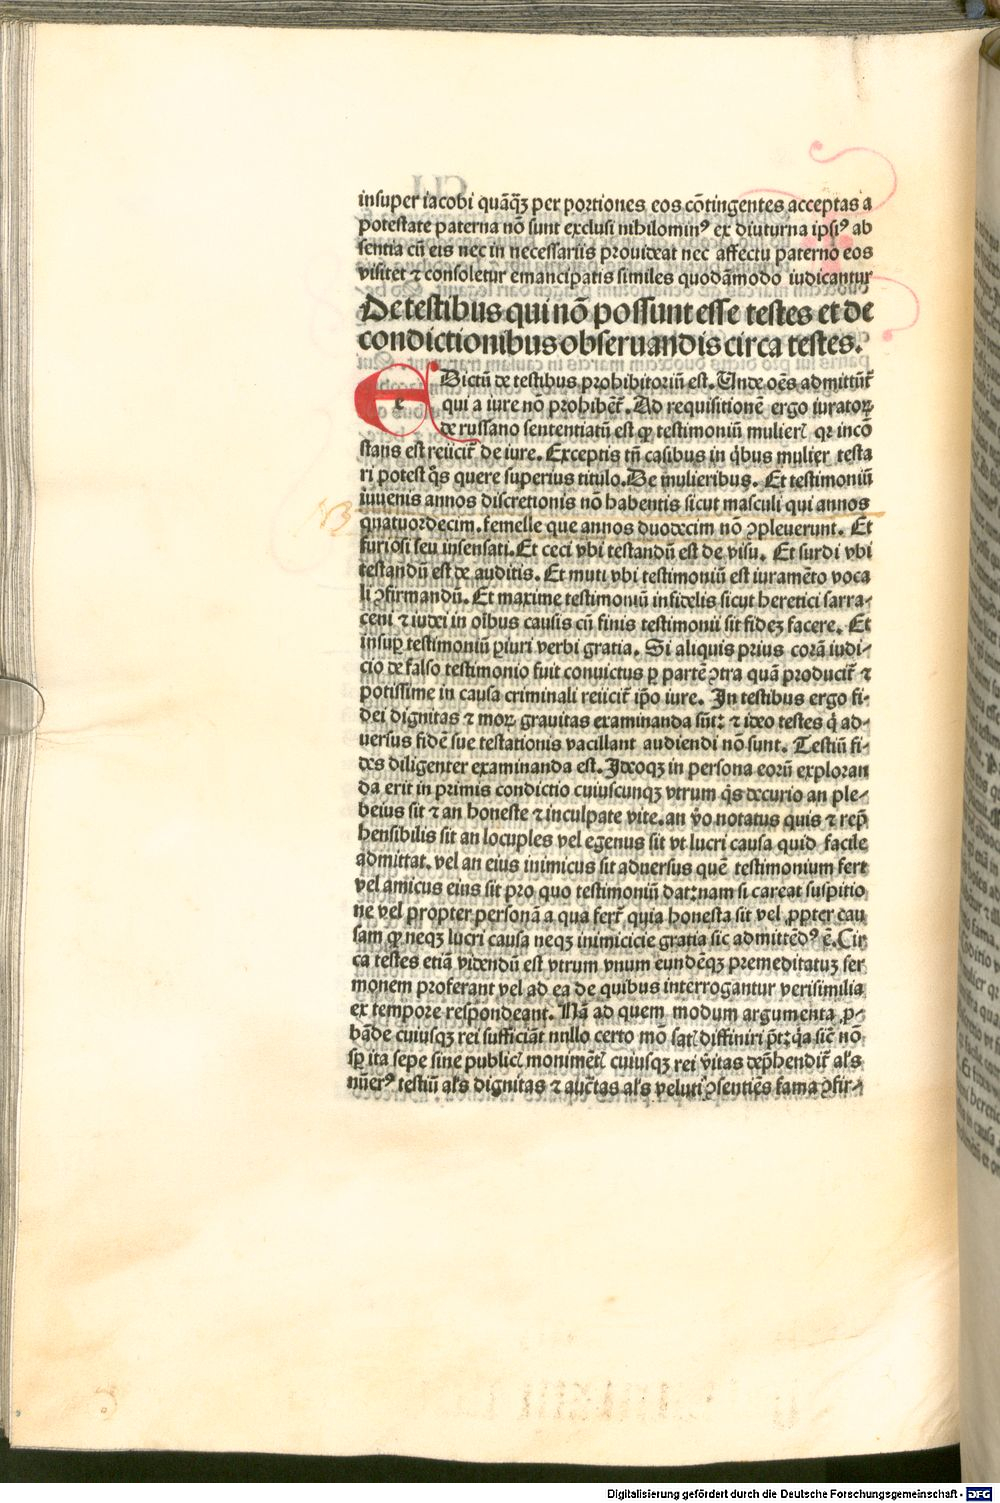 insuper iacobi quãq̃ʒ per portiones eos cõtingentes acceptas a
potestate paterna nõ sunt exclusi nihilominꝰ ex diuturna ipsiꝰ ab
sentia cũ eis nec in necessariis prouideat nec affectu paterno eos
visitet ⁊ consoletur emancipatis similes quodãmodo iudicantur
De testibus qui nõ possunt esse testes et de
condictionibus obseruandis circa testes.
e Dictũ de testibus prohibitoriũ est. Unde oẽs admittũt᷑
qui a iure nõ prohibẽt᷑. Ad requisitionẽ ergo iuratoꝝ
de russano sententiatũ est ꝙ testimoniũ mulieꝝ qꝛ incõ
stans est reiicit᷑ de iure. Exceptis tñ casibus in q̇bus mulier testa
ri potest q̇s quere superius titulo. De mulieribus. Et testimoniũ
iuuenis annos discretionis nõ habentis sicut masculi qui annos
NB
quatuordecim. femelle que annos duodecim nõ ↄpleuerunt. Et
furiosi seu insensati. Et ceci vbi testandũ est de visu. Et surdi vbi
testandũ est de auditis. Et muti vbi testimoniũ est iuramẽto voca
li ↄfirmandũ. Et maxime testimoniũ infidelis sicut heretici sarra⸗
ceni ⁊ iudei in oĩbus causis cũ finis testimonii sit fideʒ facere. Et
insuꝑ testimoniũ ꝑiuri verbi gratia. Si aliquis prius corã iudi⸗
cio de falso testimonio fuit convictus ꝑ partẽ ↄtra quã producit᷑ ⁊
potissime in causa criminali reiicit᷑ ip̃o iure. In testibus ergo fi⸗
dei dignitas ⁊ moꝝ grauitas examinanda sũt: ⁊ ideo testes q̇ ad⸗
uersus fidẽ sue testationis vacillant audiendi nõ sunt. Testiũ fi⸗
des diligenter examinanda est. Ideoqʒ in persona eorũ exploran
da erit in primis condictio cuiuscunqʒ vtrum q̇s decurio an ple⸗
beius sit ⁊ an honeste ⁊ inculpate vite. an ṽo notatus quis ⁊ rep̃
hensibilis sit an locuples vel egenus sit vt lucri causa quid facile
admittat. vel an eius inimicus sit aduersus quẽ testimonium fert
vel amicus eius sit pro quo testimoniũ dat: nam si careat suspitio
ne vel propter personã a qua fert᷑ quia honesta sit vel ꝓpter cau
sam ꝙ neqʒ lucri causa neqʒ inimicicie gratia sic admittẽdꝰ ẽ. Cir
ca testes etiã videndũ est vtrum vnum eundẽqʒ premeditatuʒ ser
monem proferant vel ad ea de quibus interrogantur verisimilia
ex tempore respondeant. Nã ad quem modum argumenta ꝓ⸗
bãde cuiusqʒ rei sufficiãt nullo certo mõ satꝭ diffiniri põt: q̃a sic̃ nõ
sꝑ ita sepe sine publicꝭ monimẽtꝭ cuiusqʒ rei ṽitas dep̃hendit᷑ al̃s
nũerꝰ testiũ al̃s dignitas ⁊ auc̃tas al̃s veluti ↄsentiẽs fama ↄfir⸗
Digitalisierung gefördert durch die Deutsche Forschungsgemeinschaft - DFG